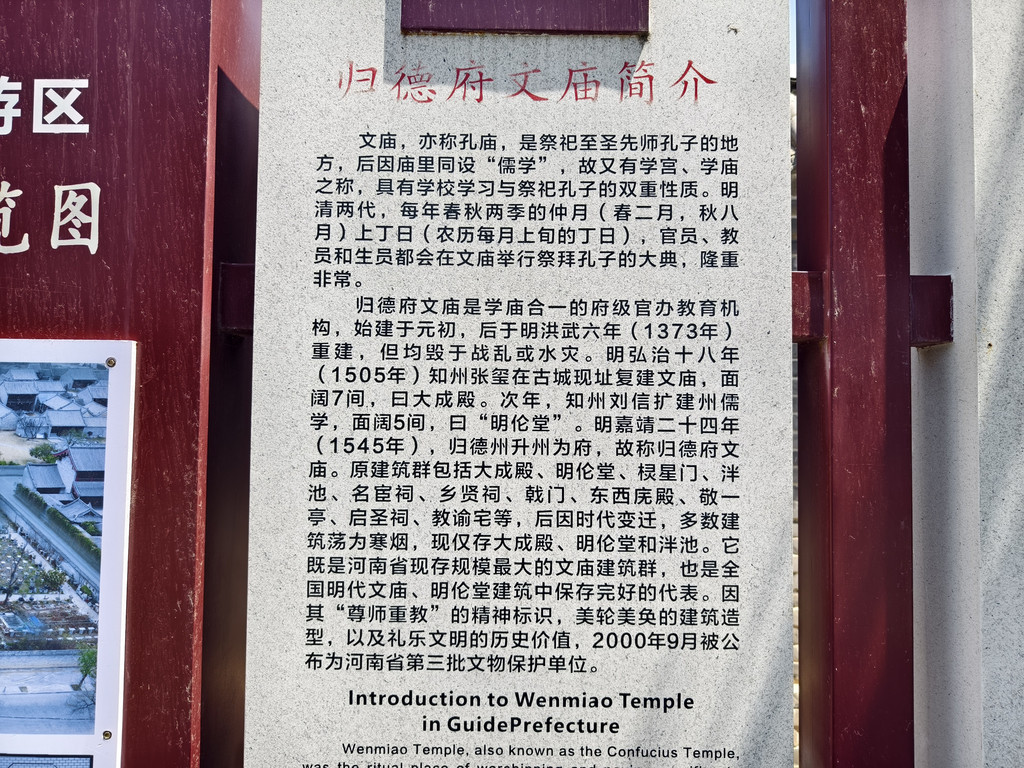 游区
览图
归德府文庙简介
文庙，亦称孔庙，是祭祀至圣先师孔子的地
方，后因庙里同设“儒学”，故又有学宫、学庙
之称，具有学校学习与祭祀孔子的双重性质。明
清两代，每年春秋两季的仲月（春二月，秋八
月）上丁日（农历每月上旬的丁日），官员、教
员和生员都会在文庙举行祭拜孔子的大典，隆重
非常。
归德府文庙是学庙合一的府级官办教育机
构，始建于元初，后于明洪武六年（1373年）
重建，但均毁于战乱或水灾。明弘治十八年
（1505年）知州张玺在古城现址复建文庙，面
阔7间，曰大成殿。次年，知州刘信扩建州儒
学，面阔5间，曰“明伦堂”。明嘉靖二十四年
（1545年），归德州升州为府，故称归德府文
庙。原建筑群包括大成殿、明伦堂、棂星门、泮
池、名宦祠、乡贤祠、戟门、东西庑殿、敬一
亭、启圣祠、教谕宅等，后因时代变迁，多数建
筑荡为寒烟，现仅存大成殿、明伦堂和泮池。它
既是河南省现存规模最大的文庙建筑群，也是全
国明代文庙、明伦堂建筑中保存完好的代表。因
其“尊师重教”的精神标识，美轮美奂的建筑造
型，以及礼乐文明的历史价值，2000年9月被公
布为河南省第三批文物保护单位。
Introduction to Wenmiao Temple
in GuidePrefecture
Wenmiao Temple, also known as the Confucius Temple,
was the ritual place of worshipping and